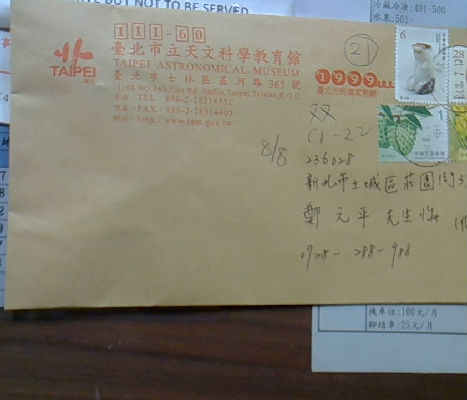 BUT NOT TO BE SERVED
冷藏冷凍:401-500
水果:501-
111-60
臺北市立天文科學教育館
TAIPEI ASTRONOMICAL MUSEUM
臺北市士林區基河路363號
電話 TEL : 886-2-28314551
傳真 FAX : 886-2-28314405
網址 http://www.tam.gov.tw
TAIPEI
臺北
21
1999
臺北市民當家熱線
6
28
1
8/8
双
C1-22
236028
新北市土城區莊園街
鄭元平 先生
0928-288-988
機車位:100元/月
腳踏車:25元/月